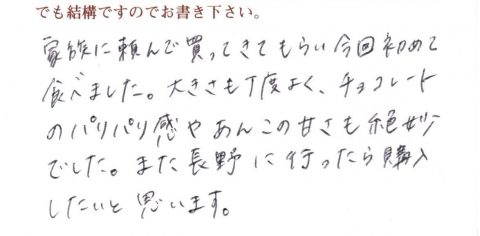 でも結構ですのでお書き下さい。
家族に頼んで買ってきてもらい今回初めて
食べました。大きさも丁度よく、チョコレート
のパリパリ感やあんこの甘さも絶妙
でした。また長野に行ったら購入
したいと思います。